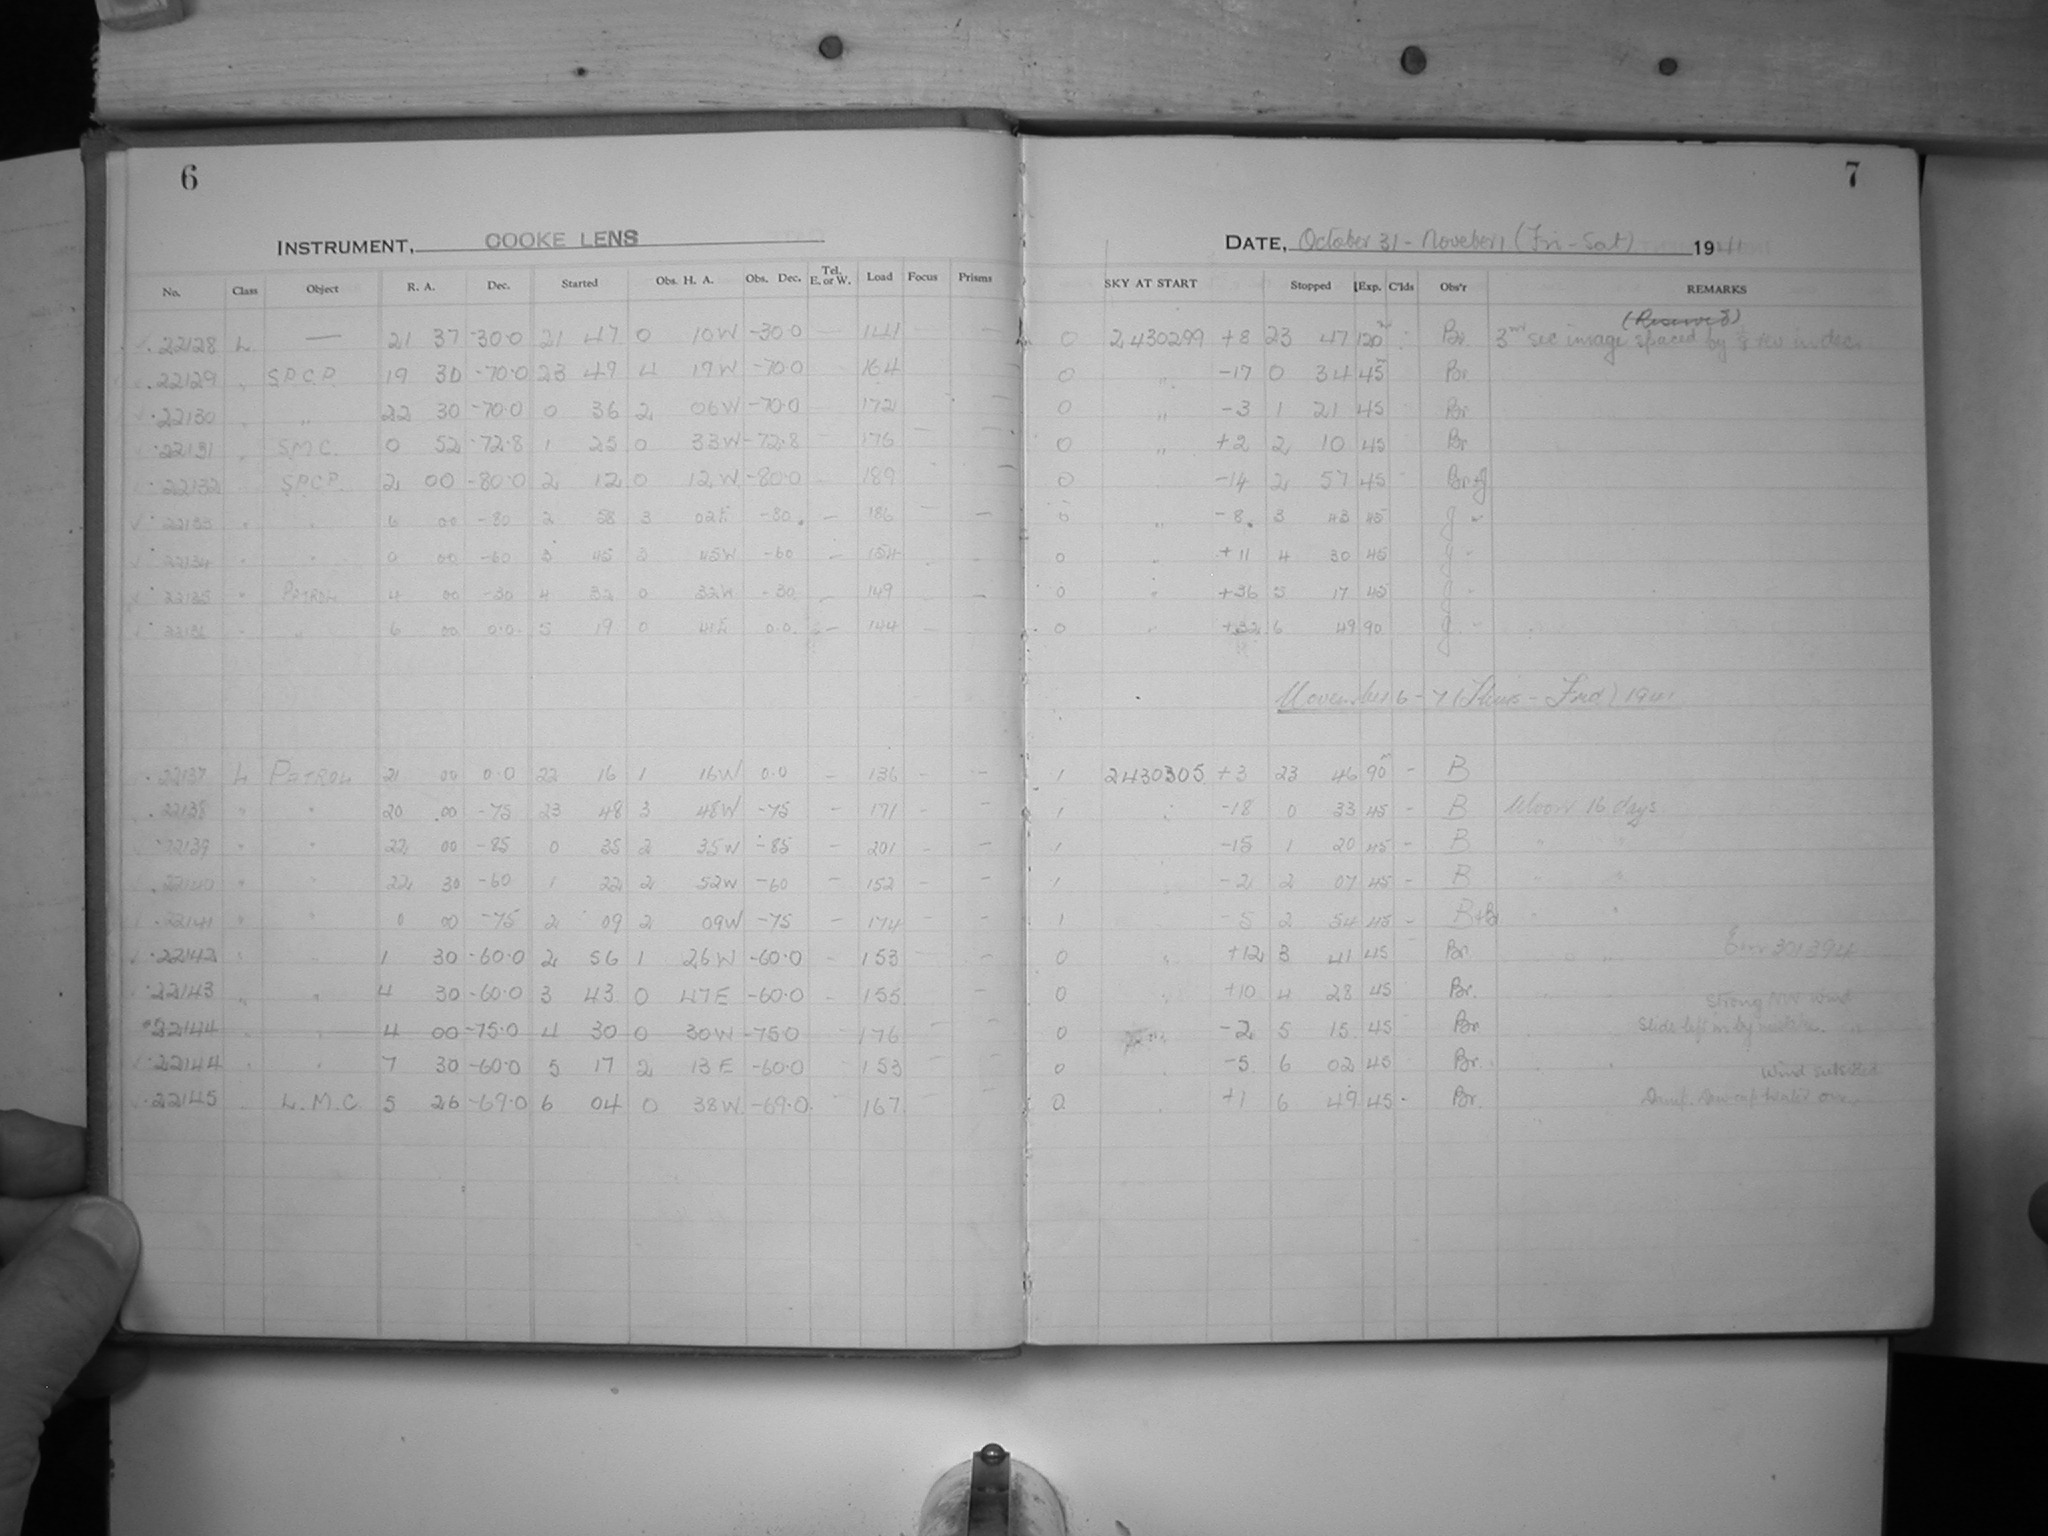 6
7
INSTRUMENT, COOKE LENS
DATE, October 31 - Noveber 1 (Fri - Sat) 1941
No. Class Object R. A. Dec. Started Obs. H. A. Obs. Dec. Tel. E. or W. Load Focus Prisms SKY AT START Stopped Exp. C'lds Obs'r REMARKS
22128 L — 21 37 -30.0 21 47 0 10W -30.0 — 141 — 0 2,430299 +8 23 47 120 Br 3rd sec image spaced by in dec.
22129 " S.P.C.P. 19 30 -70.0 23 49 4 19W -70.0 164 — 0 " -17 0 34 45 Br
22130 " " 22 30 -70.0 0 36 2 06W -70.0 172 — 0 " -3 1 21 45 Br
22131 " S.M.C. 0 52 -72.8 1 25 0 33W -72.8 176 — 0 " +2 2 10 45 Br
22132 S.P.C.P. 2 00 -80.0 2 12 0 12W -80.0 189 — 0 -14 2 57 45 Br + J
22133 " " 6 00 -80 2 58 3 02E -80 — 186 — — 0 " -8 3 43 45 J
22134 " " 0 00 -60 3 45 3 45W -60 — 154 — — 0 " +11 4 30 45 J
22135 " PATROL 4 00 -30 4 32 0 32W -30 — 149 — — 0 " +36 5 17 45 J
22136 " " 6 00 0.0 5 19 0 41E 0.0 — 144 — — 0 " +32 6 49 90 J
November 6 - 7 (Thurs - Frid) 1941
22137 L PATROL 21 00 0.0 22 16 1 16W 0.0 — 136 — — 1 2430305 +3 23 46 90 — B
22138 " " 20 00 -75 23 48 3 48W -75 — 171 — — 1 " -18 0 33 45 — B Moon 16 days
22139 " " 22 00 -85 0 35 2 35W -85 — 201 — — 1 -15 1 20 45 — B " "
22140 " " 22 30 -60 1 22 2 52W -60 — 152 — — 1 -2 2 07 45 — B " "
22141 " " 0 00 -75 2 09 2 09W -75 — 174 — — 1 -5 2 54 45 — B+Br " "
22142 " " 1 30 -60.0 2 56 1 26W -60.0 — 153 — — 0 " +12 3 41 45 Br. " "
22143 " " 4 30 -60.0 3 43 0 47E -60.0 - 155 — — 0 " +10 4 28 45 Br. Strong NW wind
22144 " 4 00 -75.0 4 30 0 30W -75.0 176 — — 0 -2 5 15 45 Br Slide left in by mistake.
22144 " " 7 30 -60.0 5 17 2 13E -60.0 153 — — 0 -5 6 02 45 Br. Wind subsided
22145 L.M.C 5 26 -69.0 6 04 0 38W -69.0 167 — 0 +1 6 49 45 - Br. Damp. Dew cap heater on.